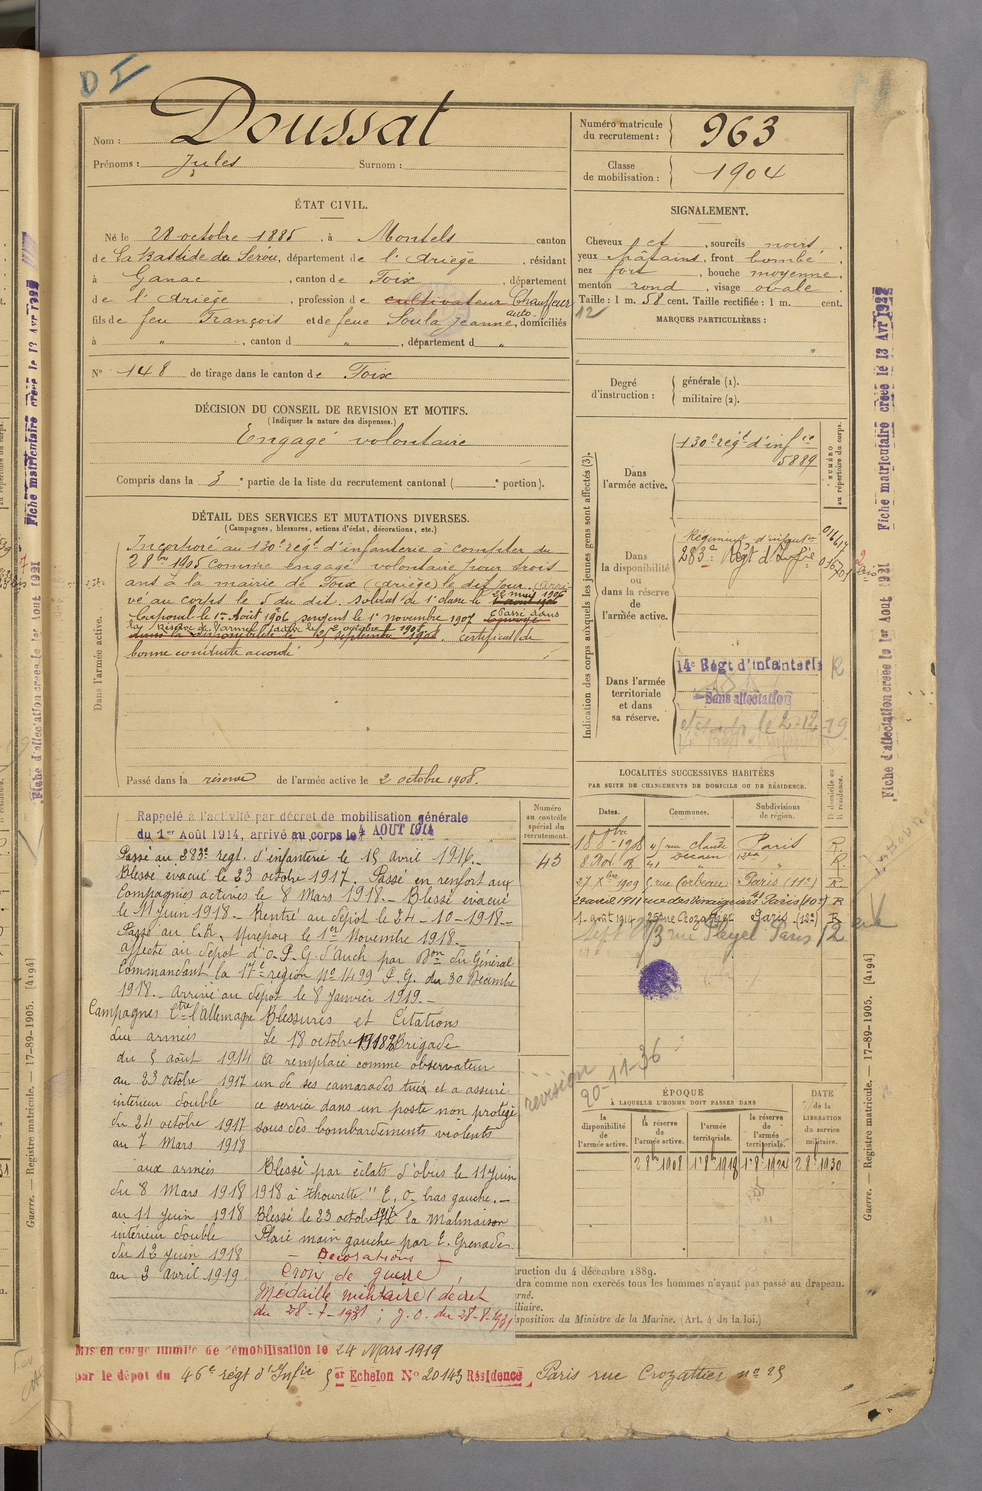 DI
Nom : Doussat
Prénoms : Jules Surnom :
Numéro matricule du recrutement : 963
Classe de mobilisation : 1904
ÉTAT CIVIL.
Né le 28 octobre 1885, à Montels canton
de La Bastide de Sérou, département de l'Ariège, résidant
à Ganac, canton de Foix, département
de l'Ariège, profession de cultivateur Chauffeur auto.
fils de feu François et de feue Soula Jeanne, domiciliés
à " , canton d " , département d "
N° 148 de tirage dans le canton de Foix
SIGNALEMENT.
Cheveux et , sourcils noirs
yeux châtains, front bombé
nez fort, bouche moyenne
menton rond, visage ovale
Taille : 1 m. 58 cent. Taille rectifiée : 1 m. cent.
12
MARQUES PARTICULIÈRES :
DÉCISION DU CONSEIL DE REVISION ET MOTIFS.
(Indiquer la nature des dispenses.)
Engagé volontaire
Compris dans la 3e partie de la liste du recrutement cantonal ( e portion).
Degré d'instruction : générale (1).
militaire (2).
DÉTAIL DES SERVICES ET MUTATIONS DIVERSES.
(Campagnes, blessures, actions d'éclat, décorations, etc.)
Dans l'armée active.
Incorporé au 130e régt d'infanterie à compter du
28 bre 1905 comme engagé volontaire pour trois
ans à la mairie de Foix (Ariège) le dit jour. Arri-
vé au corps le 5 du dit. soldat de 1e classe le 22 mars 1906
Caporal le 1er Août 1906 sergent le 1er novembre 1907 Passé dans
la réserve de l'armée active le 2 octobre 1908
dans la disponibilité le septembre certificat de
bonne conduite accordé
Passé dans la réserve de l'armée active le 2 octobre 1908.
Indication des corps auxquels les jeunes gens sont affectés (3).
NUMÉRO au répertoire du corps.
Dans l'armée active. 130e régt d'infie
5889
Dans la disponibilité ou dans la réserve de l'armée active.
Régiment d'infanterie
283e Régt d'Infie
Dans l'armée territoriale et dans sa réserve.
14e Régt d'infanterie
Sans affectation
LOCALITÉS SUCCESSIVES HABITÉES
PAR SUITE DE CHANGEMENTS DE DOMICILE OU DE RÉSIDENCE.
Dates. Communes. Subdivisions de région. D domicile ou R résidence.
4 rue Claude Decaen Paris R
12e R
27 Xbre 1909 5 rue Corbeau Paris (11e) R
29 avril 1911 Paris (10e) R
1. août 1914 25 rue Crozatier Paris (12e) R
3 rue Pleyel Paris 12
Numéro au contrôle spécial du recrutement.
43
Rappelé à l'activité par décret de mobilisation générale
du 1er Août 1914, arrivé au corps le 4 AOUT 1914
Passé au 283e regt. d'infanterie le 15 avril 1916.
Blessé évacué le 23 octobre 1917. Passé en renfort aux
Compagnies actives le 8 Mars 1918. Blessé évacué
le 11 juin 1918. Rentré au dépôt le 24-10-1918.
Passé au le 1er Novembre 1918.
affecté au dépôt d'O. P. G. d'Auch par Bon du Général
Commandant la 17e région no 1499 P. G. du 30 Décembre
1918. Arrivé au dépôt le 8 janvier 1919.
Campagnes Ctre l'Allemagne
aux armées
du 5 août 1914
au 23 octobre 1917
intérieur double
du 24 octobre 1917
au 7 Mars 1918
aux armées
du 8 Mars 1918
au 11 juin 1918
intérieur double
du 12 juin 1918
au 3 avril 1919
Blessures et Citations
Le 18 octobre 1918 Brigade
A remplacé comme observateur
un de ses camarades tué et a assuré
ce service dans un poste non protégé
sous des bombardements violents
Blessé par éclats d'obus le 11 juin
1918 à Thourotte " E. O. bras gauche.
Blessé le 23 octobre 1917 à la Malmaison
Plaie main gauche par E. Grenades.
Décorations
Croix de guerre
Médaille militaire (décret
du 28-7-1931 ; J. O. du 28-8-1931
révision
20-11-36
ÉPOQUE
À LAQUELLE L'HOMME DOIT PASSER DANS
la disponibilité de l'armée active. la réserve de l'armée active. l'armée territoriale. la réserve de l'armée territoriale.
DATE de la LIBÉRATION du service militaire.
2 8bre 1908 1er 8bre 1918 1er 8bre 1924 2 8bre 1930
ruction du 4 décembre 1889.
dra comme non exercés tous les hommes n'ayant pas passé au drapeau.
rné.
iliaire.
sposition du Ministre de la Marine. (Art. 4 de la loi.)
Mis en congé illimité de démobilisation le 24 Mars 1919
par le dépôt du 46e régt d'Infie 5er Echelon N° 20143 Résidence Paris rue Crozatier no 25
Fiche matriculaire créée le 13 Avr 1927
Fiche d'affectation créée le 1er Aout 1921
Guerre. — Registre matricule. — 17-89-1905. [4194]
Fiche matriculaire créée le 13 Avr 1927
Fiche d'affectation créée le 1er Aout 1921
Guerre. — Registre matricule. — 17-89-1905. [4194]